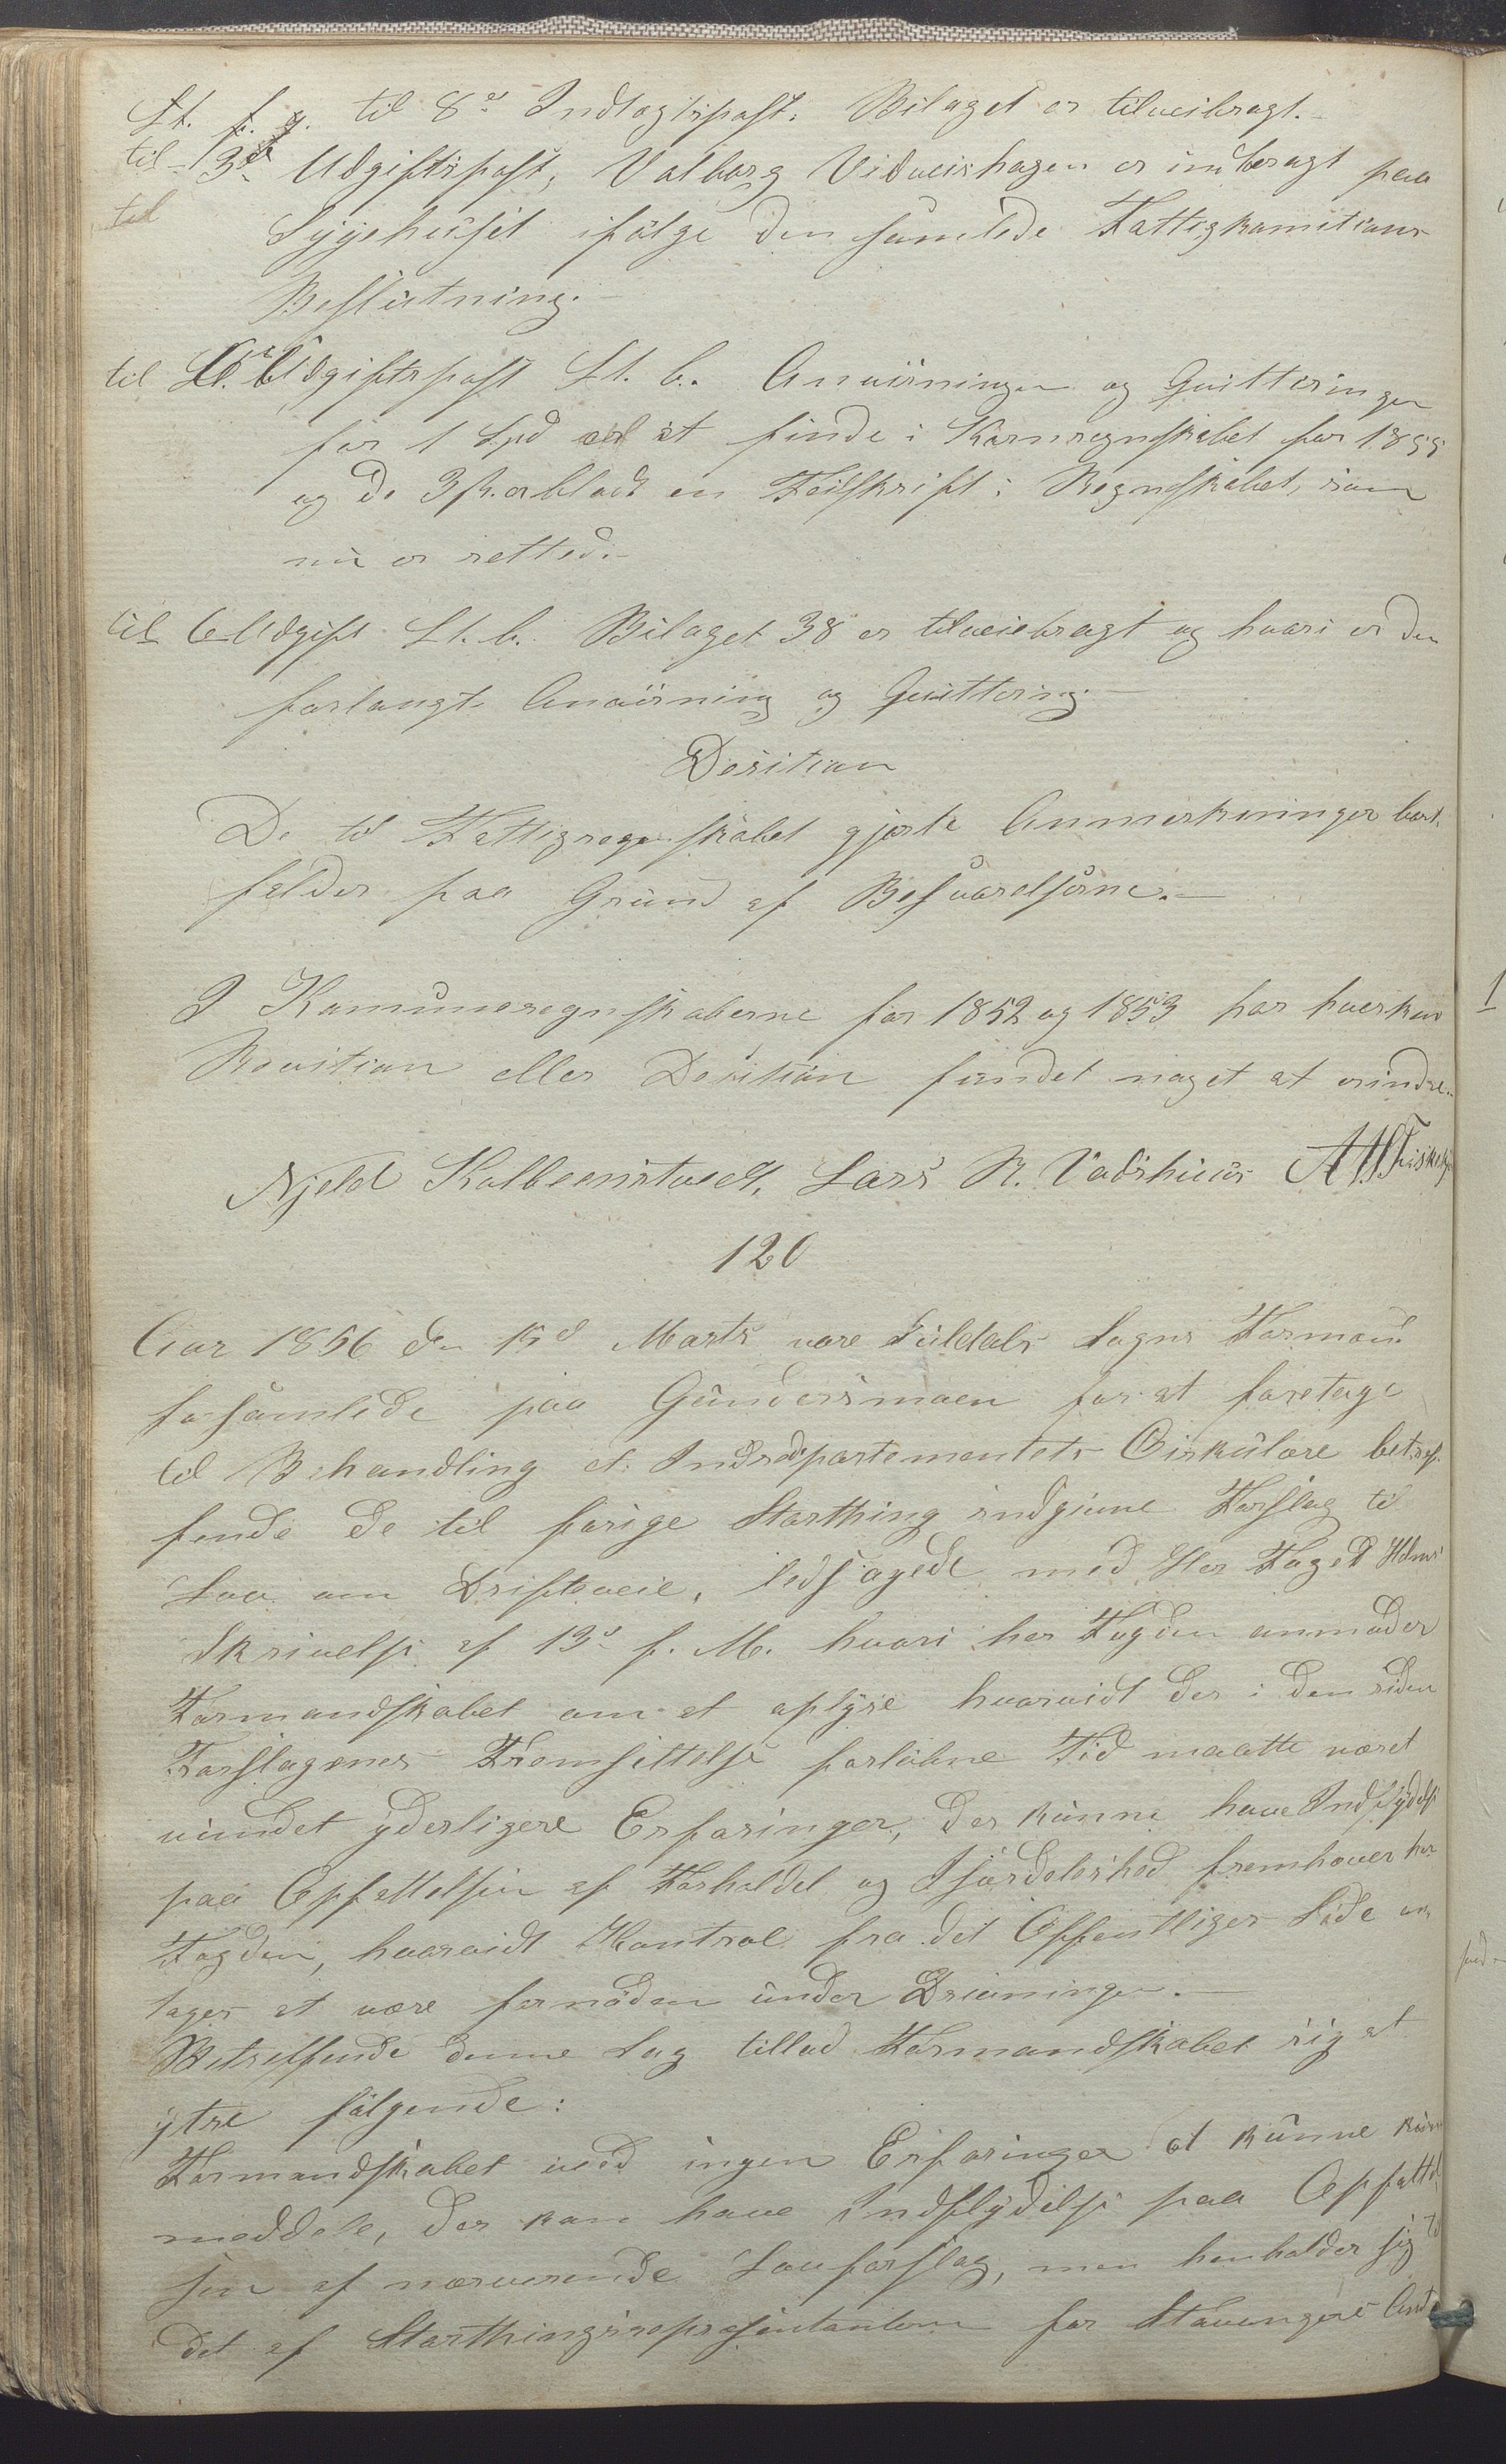 Lt. f. g. til 8de Indtægtspost. Bilaget er tilveibragt.
til 3de Udgiftspost, Valborg Vidveishagen er indbragt paa
til Sygehuset ifølge den samlede Fattigkomitions
Beslutning.
til Udgiftspost Lt. b. Anvisningen og Quitteringen
for 1 Spd er at finde i Kornregnskabet for 1855
og de 3 ß. er blodt en Feilskrift i Regnskabet, som
nu er rettet.
til 6 Udgift Lt. b. Bilaget 38 er tilveiebragt og hvori er den
forlangte Anvisning og Quittering.
Desition
De til Fattigregnskabet gjorte Anmerkninger bort-
falder paa Grund af Besvarelserne.
I Komuneregnskaberne for 1852 og 1853 har hverken
Revition eller Desition fundet noget at erindre.
Njeld Kolbeenstvedt, Lars R. Vadshuus
120
Aar 1856 den 15d Marts vare Suldals Sogns Formænd
forsamlede paa Gundersmoen for at foretage
til Behandling et Indredepartementets Cirkulære betref-
fende de til forige Storthing indgivne Forslag til
Lov om Drifteveie, ledsagede med Her Foged Holms
Skrivelse af 13d f. M. hvori her Fogden anmoder
Formandskabet om at oplyse hvorvidt der i den siden
Forslagenes Fremsættelse forløbne Tid maatte været
vundet yderligere Erfaringer, der kunne have Indflydelse
paa Opfattelsen af Forholdet og Isærdeleshed fremhæver her
Fogden, hvorvidt Kontrol fra det Offentliges Side an-
tages at være fornøden under Drivningen.
Betreffende denne Sag tillod Formandskabet sig at
ytre følgende:
Formandskabet ved ingen Erfaringer at kunne
meddele, der kan have Indflydelse paa Opfattel-
sen af nærværende Lovforslag, men henholder sig til
det af Storthingsrepræsentanten for Stavangers Amt